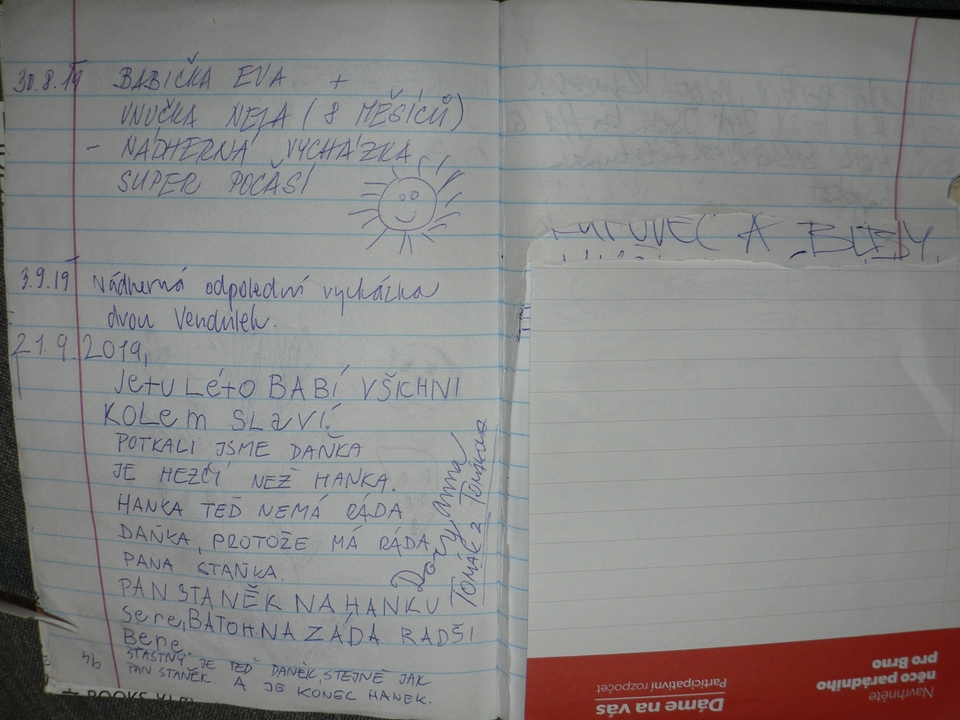 30.8.19 BABIČKA EVA +
VNUČKA NEJA (8 MĚSÍCŮ)
- NÁDHERNÁ VYCHÁZKA
SUPER POČASÍ
3.9.19 Nádherná odpolední vycházka
dvou Vendulek.
21.9.2019,
Je tu Léto BABÍ VŠICHNI
KOLEM SLaVÍ!
POTKALI JSME DAŇKA
JE HEZČÍ NEŽ HANKA.
HANKA TEĎ NEMÁ RÁDA
DAŇKA, PROTOŽE MÁ RÁDA
PANA STAŇKA.
PAN STANĚK NA HANKU
Sere, BATOH NA ZÁDA RADŠI
Bere.
ŠŤASTNÝ JE TEĎ DANĚK, STEJNĚ JAK
PAN STANĚK. A JE KONEC HANEK.
Tomáš z
94
BOOKS
A BLEDÝ
Navrhněte
něco parádního
pro Brno
Dáme na vás
Participativní rozpočet